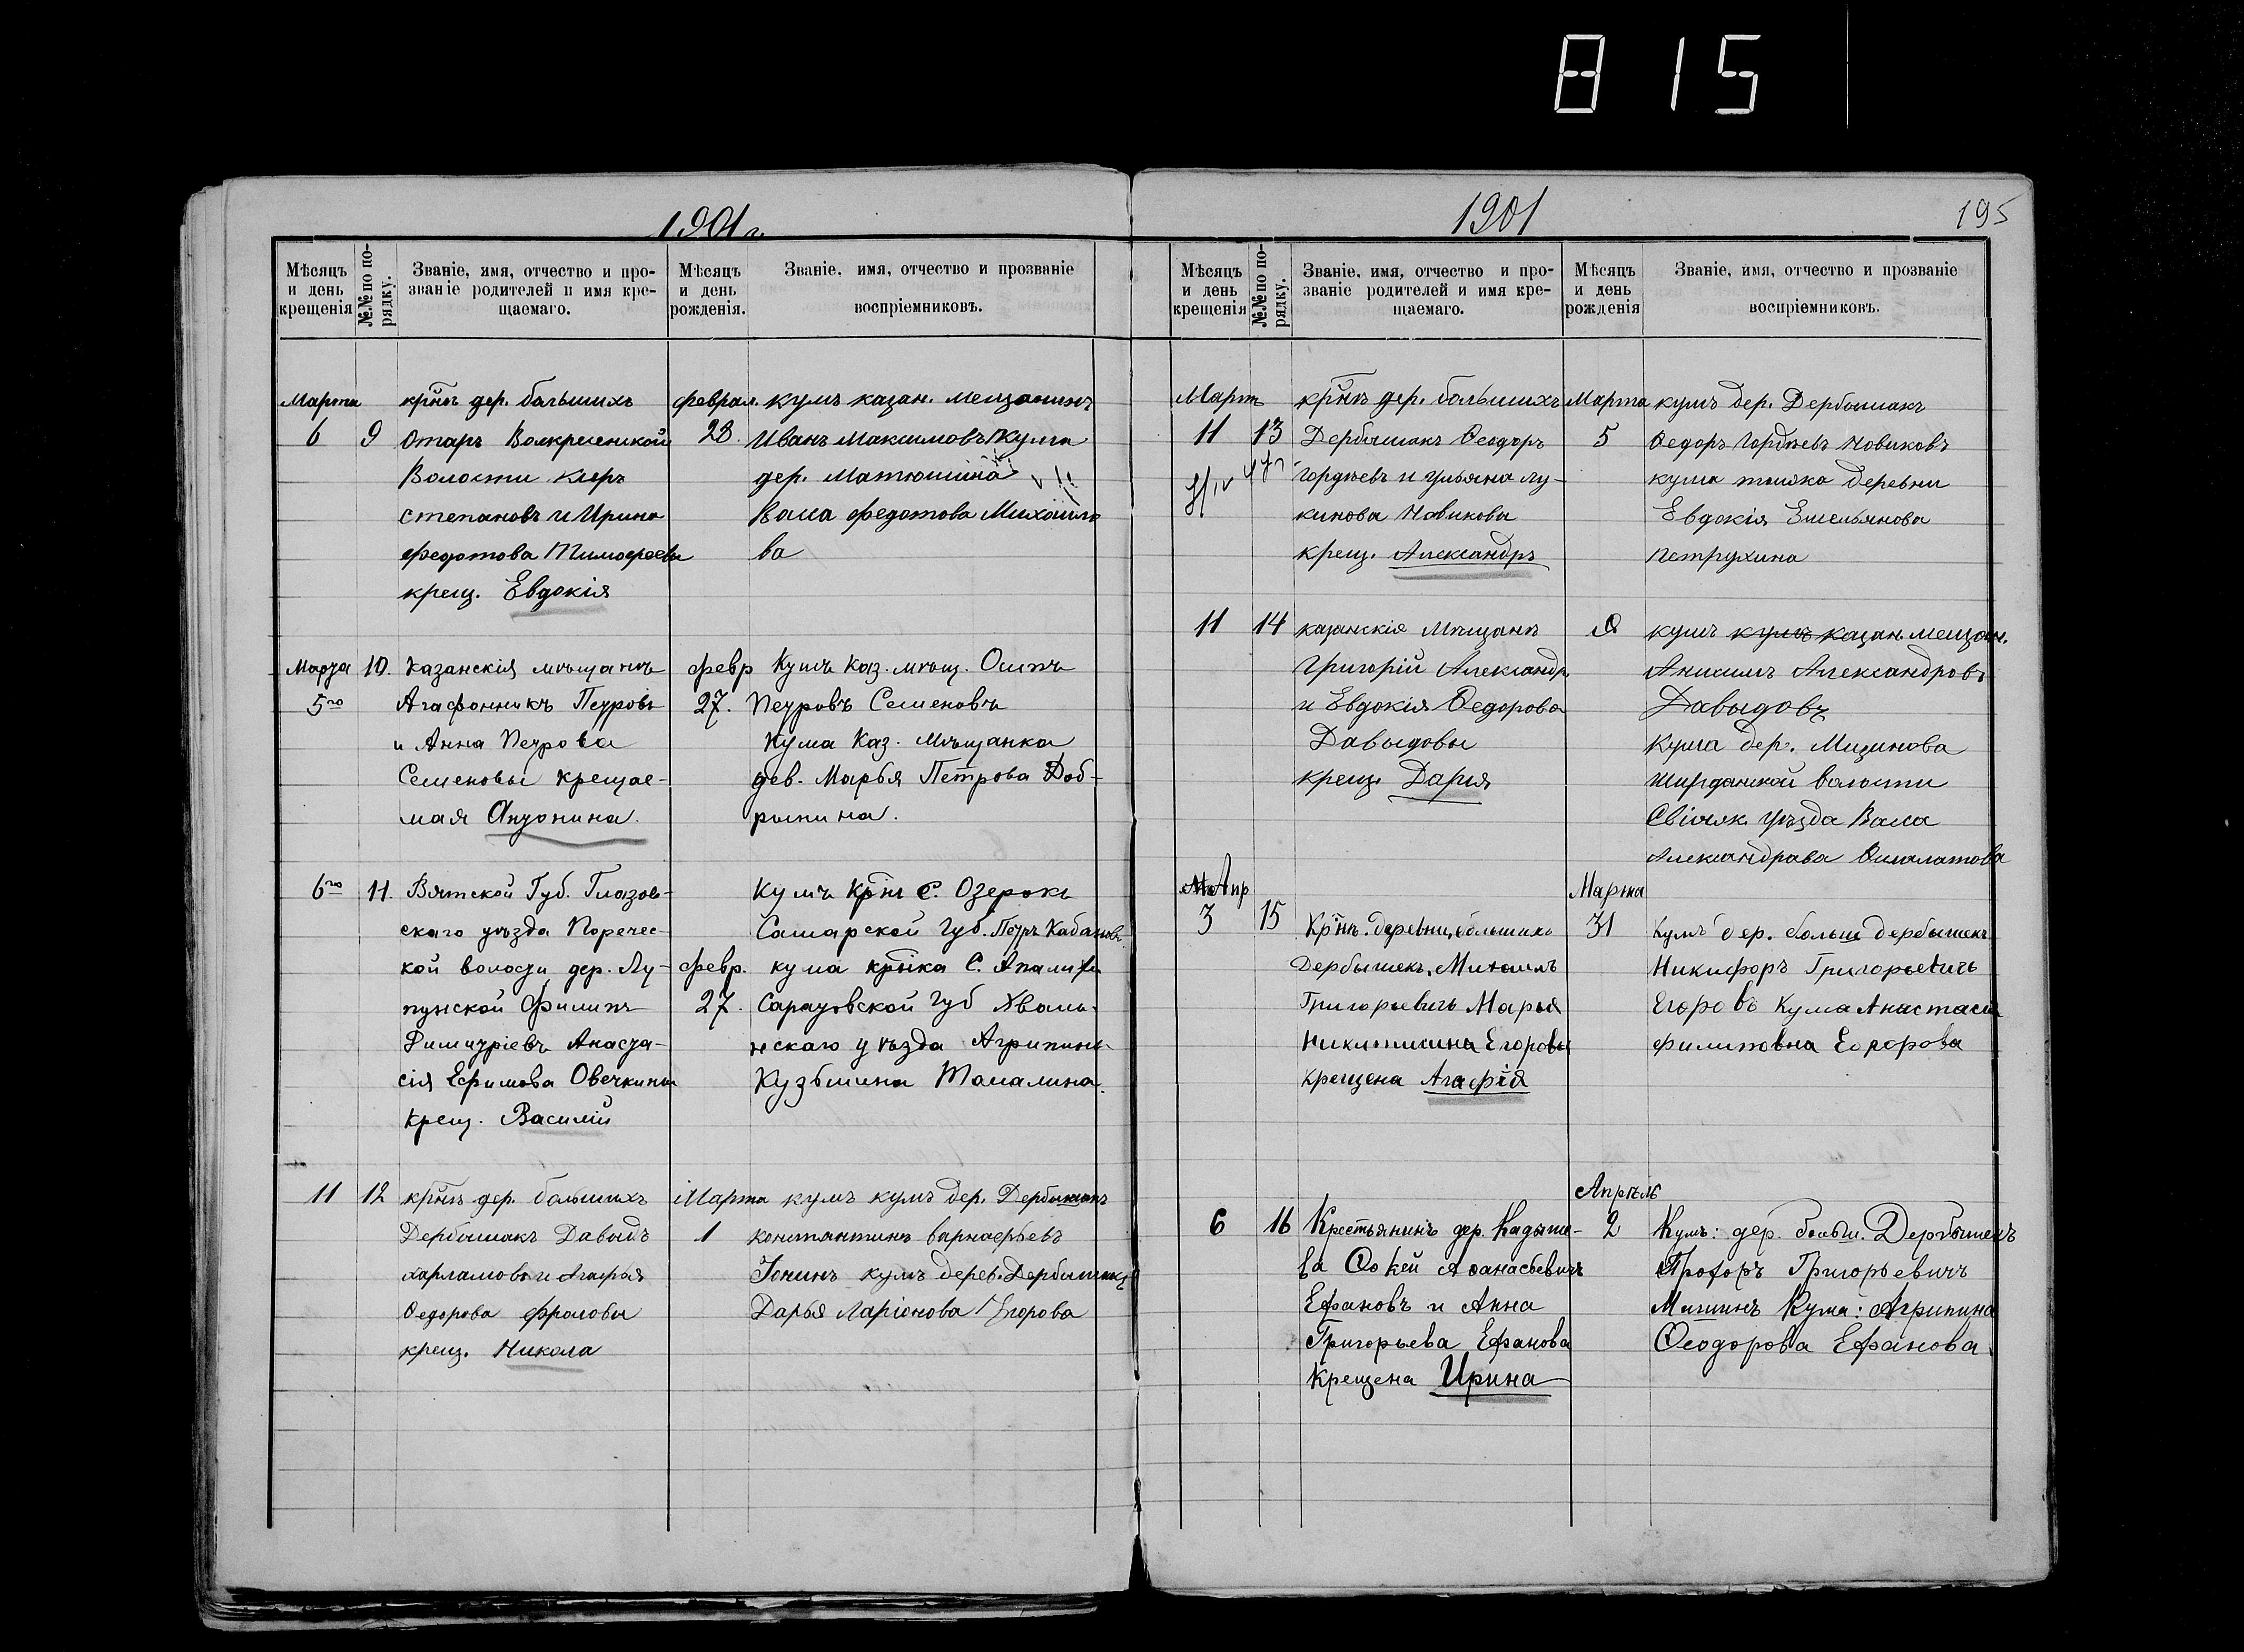 815
1901 г.
Мѣсяцъ и день крещенія
№.№ по порядку.
Званіе, имя, отчество и про-
званіе родителей и имя кре-
щаемаго.
Мѣсяцъ и день рожденія.
Званіе, имя, отчество и прозваніе
воспріемниковъ.
Марта
6
9
крн̃ъ дер. большихъ
Отаръ Воскресенской
Волости Киръ
степановъ и Ирина
федотова Тимофеевы
крещ. Евдокія
феврал.
28.
кумъ казан. мещанинъ
Иванъ Максимовъ кума
дер. Матюшина
Васа федотова Михайло
ва
Марта
5го
10.
Казанскія мѣщанъ
Агафонникъ Петровъ
и Анна Петрова
Семеновы крещае-
мая Антонина.
февр
27.
Кумъ Каз. мѣщ. Осипъ
Петровъ Семеновъ
Кума Каз. мѣщанка
дев. Марья Петрова Доб-
рынина.
6го
11.
Вятской Губ. Глазов-
скаго уѣзда Поречес-
кой волости дер. Лу-
пунской Филипъ
Димитріевъ Анаста-
сія Ефимова Овечкины
Крещ. Василій
февр.
27.
Кумъ Крн̃ъ С. Озерокъ
Самарской Губ. Петръ Кабановъ
кума крн̃ка С.
Саратовской Губ Хвалы-
нскаго уѣзда Агрипина
Кузьмина
11
12
крн̃ъ дер. большихъ
Дербышакъ Давыдъ
харламовъ и Агафья
Федорова фроловы
крещ. Никола
Марта
1
кумъ кумъ дер. Дербышакъ
константинъ варнафьевъ
Іонинъ кумъ дерев. Дербышакъ
Дарья Ларіонова Егорова
1901
195
Мѣсяцъ и день крещенія
№.№ по порядку.
Званіе, имя, отчество и про-
званіе родителей и имя кре-
щаемаго.
Мѣсяцъ и день рожденія
Званіе, имя, отчество и прозваніе
воспріемниковъ.
Мартъ
11
13
крн̃ъ дер. большихъ
Дербышакъ Ѳеодоръ
Гордѣевъ и Ульяна лу-
кинова Новиковы
крещ. Александръ
Марта
5
кумъ дер. Дербышакъ
Ѳедоръ Гордѣевъ Новиковъ
кума тоижо деревни
Евдокія Емельянова
петрухина
11
14
казанскія Мѣщанъ
Григорій Александр.
и Евдокія Ѳедорова
Давыдовы
крещ. Дарья
кумъ кумъ казан мещан.
Анисимъ Александровъ
Давыдовъ
Кума дер. Мизинова
Ширданской волости
Свіяж. уѣзда Васа
Александрава
Апр
3
15
Крн̃ъ. деревни, большихъ
Дербышекъ. Михаилъ
Григорьевичъ Марья
Никитишна Егоровы
крещена Агафія
Марта
31
Кумъ дер. больш дербышекъ
Никифоръ Григорьевичъ
Егоровъ Кума Анастасія
филиповна Егорова
6
16
Крестьянинъ дер. Кадыше-
ва Фокей Аѳанасьевичъ
Ефановъ и Анна
Григорьева Ефанова
Крещена Ирина
Апрѣль
2
Кумъ: дер. больш. Дербышекъ
Прохоръ Григорьевичъ
Мишинъ Кума: Агрипина
Ѳеодорова Ефанова.